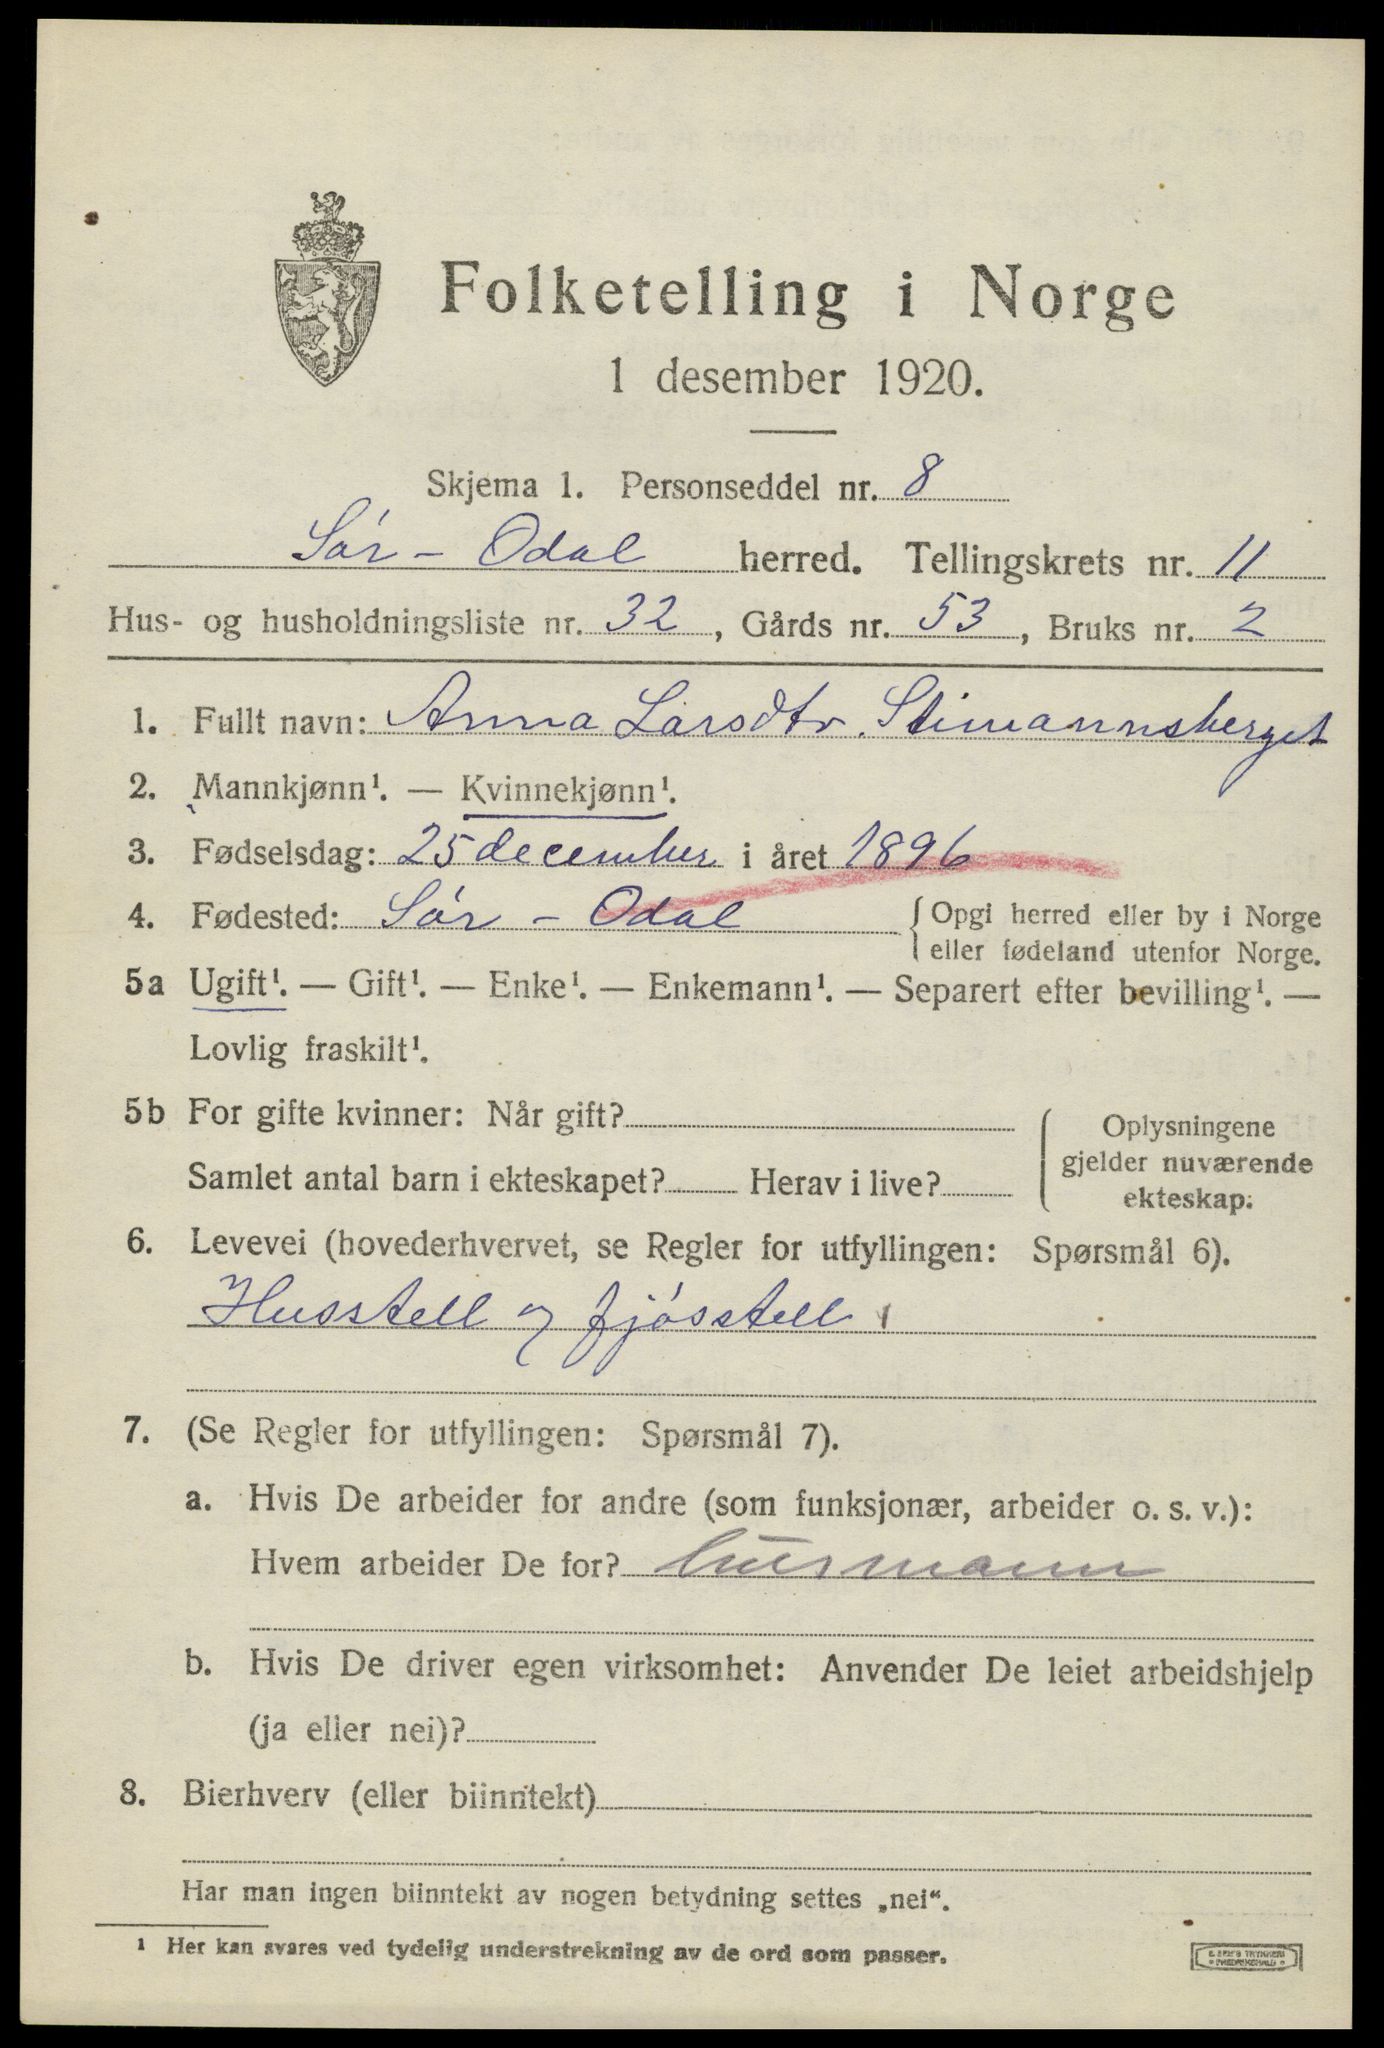 Folketelling i Norge
1 desember 1920.
Skjema 1. Personseddel nr. 8
Sór - Odal herred. Tellingskrets nr. 11
Hus- og husholdningsliste nr. 32, Gårds nr. 53, Bruks nr. 2
1. Fullt navn: Anna Larsdtr. Stimannsberget
2. Mannkjønn¹. — Kvinnekjønn¹.
3. Fødselsdag: 25 december i året 1896
4. Fødested: Sór - Odal { Opgi herred eller by i Norge
eller fødeland utenfor Norge.
5a Ugift¹. — Gift¹. — Enke¹. — Enkemann¹. — Separert efter bevilling¹. —
Lovlig fraskilt¹.
5b For gifte kvinner: Når gift?
Samlet antal barn i ekteskapet? Herav i live?
Oplysningene
gjelder nuværende
ekteskap.
6. Levevei (hovederhvervet, se Regler for utfyllingen: Spørsmål 6).
Husstell og fjósstell
7. (Se Regler for utfyllingen: Spørsmål 7).
a. Hvis De arbeider for andre (som funksjonær, arbeider o. s. v.):
Hvem arbeider De for? husmann
b. Hvis De driver egen virksomhet: Anvender De leiet arbeidshjelp
(ja eller nei)?
8. Bierhverv (eller biinntekt)
Har man ingen biinntekt av nogen betydning settes „nei“.
¹ Her kan svares ved tydelig understrekning av de ord som passer.